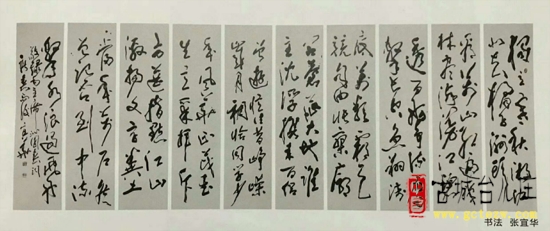 独立寒秋湘江
北去橘子洲头
看万山红遍层
林尽染漫江碧
透百舸争流鹰
击长空鱼翔浅
底万类霜天
竞自由怅寥廓
问苍茫大地谁
主沉浮携来百侣
曾游忆往昔峥嵘
岁月稠恰同学少
年风华正茂书
生意气挥斥
方遒指点江山
激扬文字粪土
当年万户侯
曾记否到中流
击水浪遏飞舟
书法 张宜华